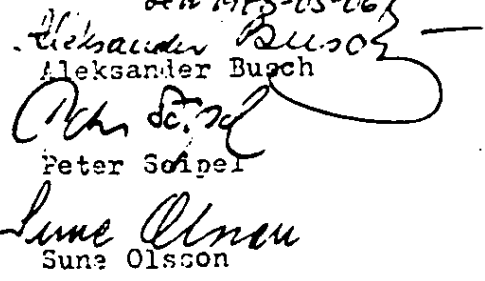 den 1985-05-06
Aleksander Busch
Aleksander Busch
Peter Seipel
Peter Seipel
Sune Olsson
Sune Olsson